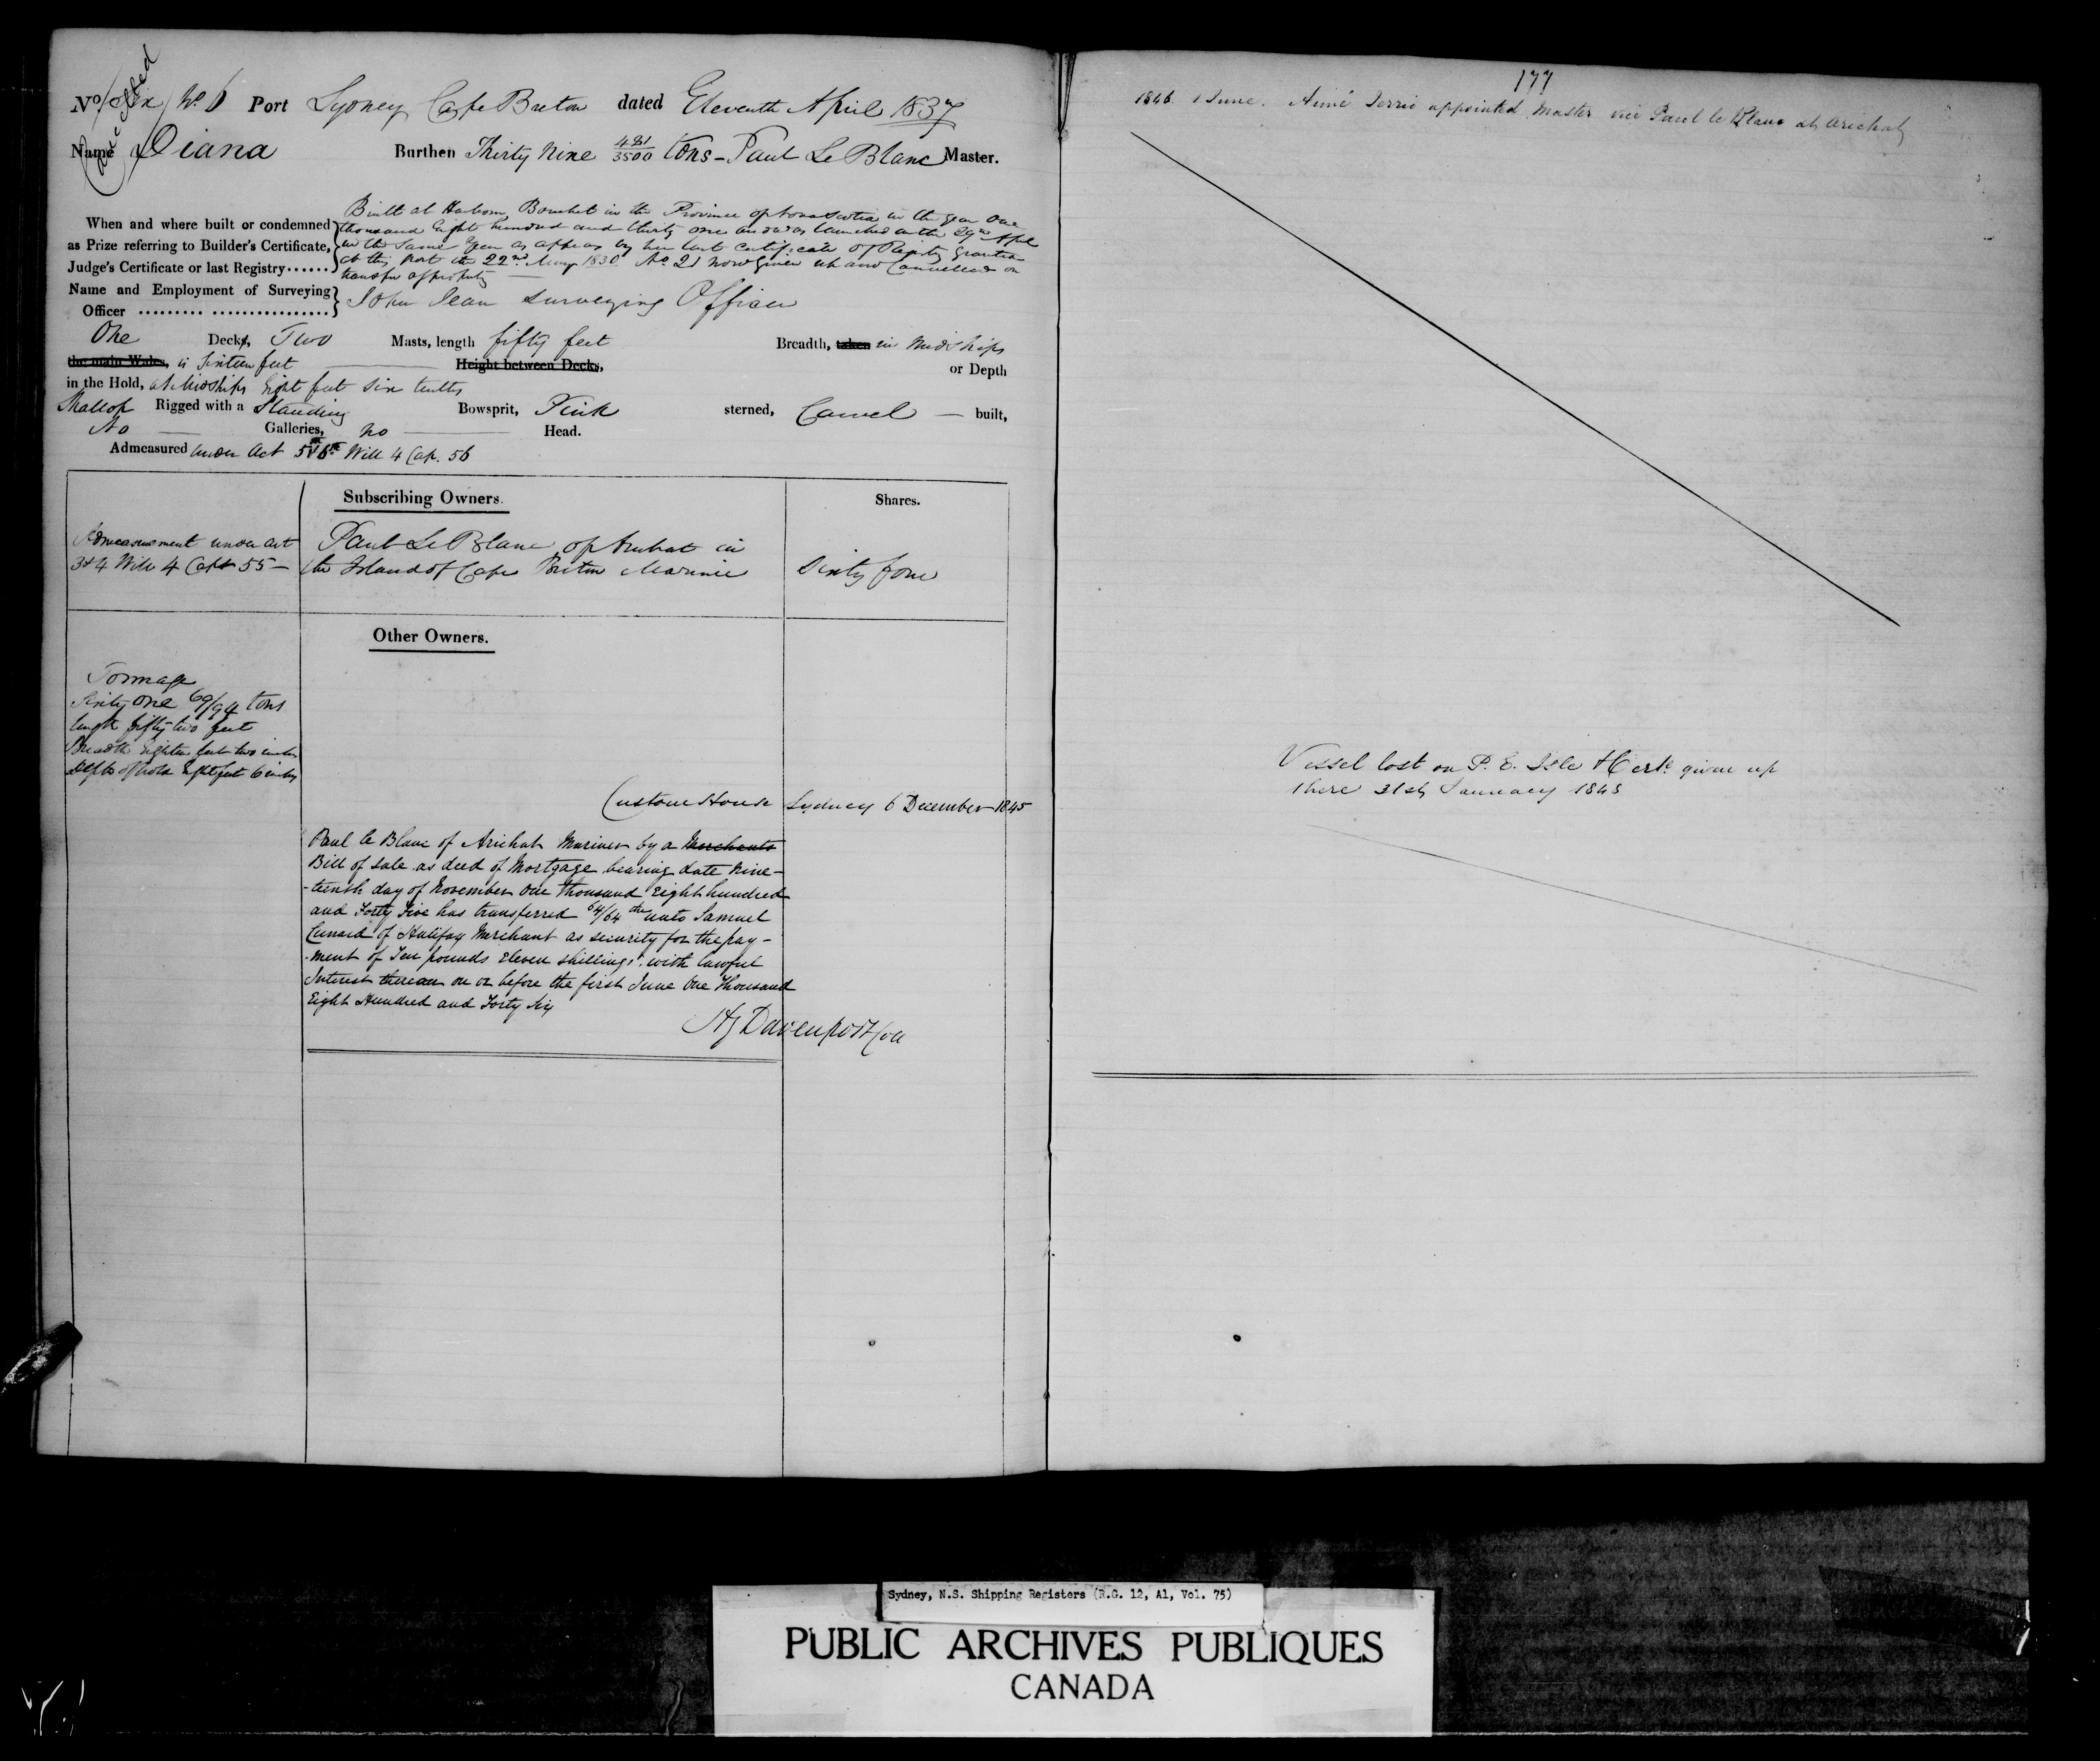 No Six No. 6 Port Sydney Cape Breton dated Eleventh April 1837
Name Diana Burthen Thirty Nine 481/3500 tons - Paul Le Blanc Master.
When and where built or condemned
as Prize referring to Builder's Certificate,
Judge's Certificate or last Registry
Built at Harbour Bouchet in the Province of Nova Scotia in the year One
thousand Eight hundred and thirty one and was launched on the 29th April
in the same Year as appears by her last Certificate of Registry Granted
at this Port the 22nd May 183 No. 21 now given up and Cancelled on
transfer of property
Name and Employment of Surveying
Officer
John Jean Surveying Officer
One Decks, Two Masts, length fifty feet Breadth, taken in Midships
the main Wales, is Sixteen feet Height between Decks, or Depth
in the Hold, at Midships Eight feet six tenths
Shallop Rigged with a Standing Bowsprit, Pink sterned, Carvel built,
No Galleries, no Head.
Admeasured under Act 5 & 6th Will 4 Cap. 56
Subscribing Owners. Shares.
Admeasurement under act
3 & 4 Will 4 Cap 55 -
Paul Le Blanc of Arichat in
the Island of Cape Breton Mariner
Sixty four
Other Owners.
Tonnage
Sixty One 69/94 tons
length fifty two feet
Breadth Eighteen feet two inches
Depth of hold Eight feet 6 inches
Custom House Sydney 6 December 1845
Paul le Blanc of Arichat Mariner by a Merchants
Bill of Sale as deed of Mortgage bearing date Nine-
-teenth day of November One thousand Eight hundred
and Forty Five has transferred 64/64ths unto Samuel
Cunard of Halifax Merchant as security for the pay-
-ment of Ten pounds Eleven shillings with lawful
Interest thereon on or before the first June One Thousand
Eight Hundred and Forty Six
Davenport Coll
177
1846 1 June. Aimé Terrio appointed Master vice Paul le Blanc at Arichat
Vessel lost on P. E. Isle & Certe. given up
there 31st January 1848
Sydney, N.S. Shipping Registers (R.G. 12, A1, Vol. 75)
PUBLIC ARCHIVES PUBLIQUES
CANADA